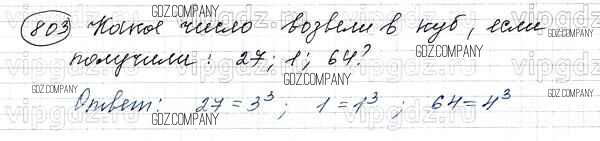 803 Какое число возвели в куб, если
получили: 27; 1; 64?
Ответ: 27 = 3³; 1 = 1³; 64 = 4³
GDZ.COMPANY
GDZ.COMPANY
GDZ.COMPANY
GDZ.COMPANY
GDZ.COMPANY
GDZ.COMPANY
vipgdz
vipgdz
vipgdz